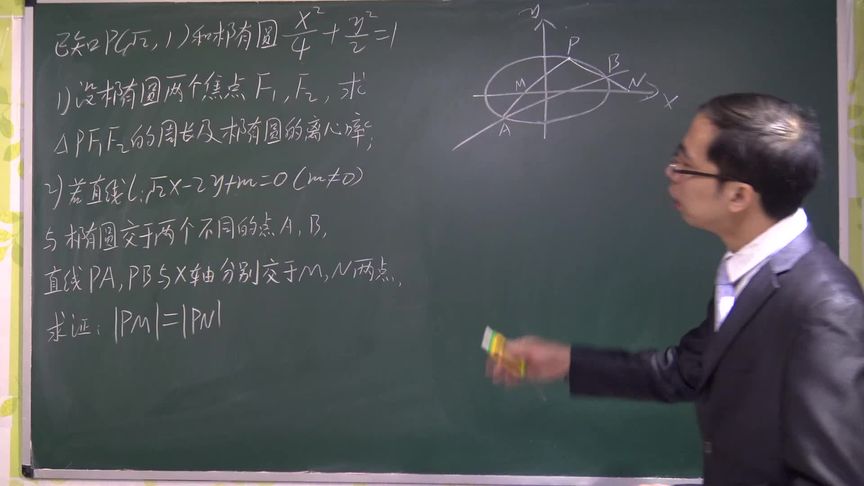 已知P(√2,1)和椭圆x²/4+y²/2=1
1)设椭圆两个焦点F₁,F₂,求
△PF₁F₂的周长及椭圆的离心率;
2)若直线l:√2x-2y+m=0(m≠0)
与椭圆交于两个不同的点A,B,
直线PA,PB与X轴分别交于M,N两点,
求证:|PM|=|PN|
y
P
B
M
N
X
A